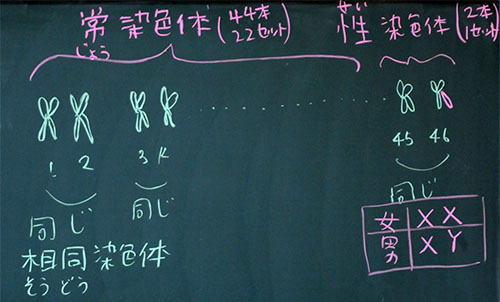 常染色体(44本 22セット)
じょう
性染色体(2本 1セット)
せい
1 2 3 45 46
同じ 同じ 同じ
相同染色体
そうどう
女 X X
男 X Y